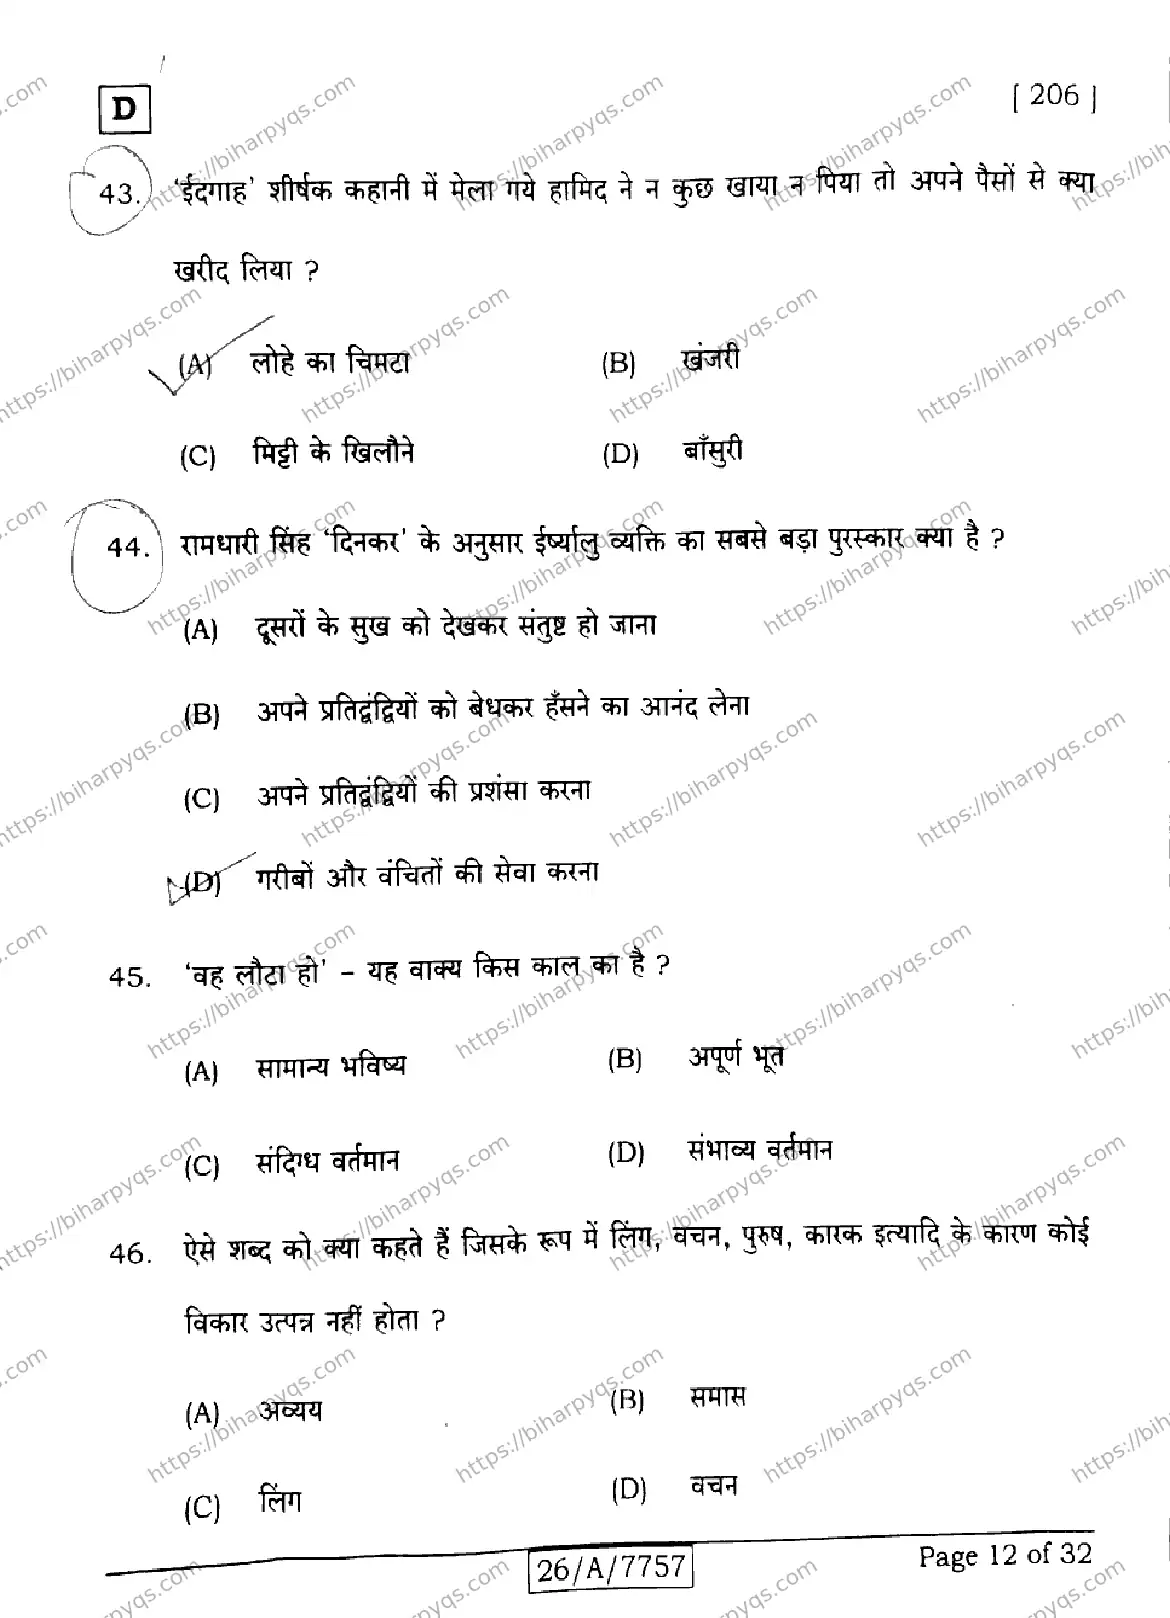 D
[ 206 ]
43. 'ईदगाह' शीर्षक कहानी में मेला गये हामिद ने न कुछ खाया न पिया तो अपने पैसों से क्या
खरीद लिया ?
(A) लोहे का चिमटा (B) खंजरी
(C) मिट्टी के खिलौने (D) बाँसुरी
44. रामधारी सिंह 'दिनकर' के अनुसार ईर्ष्यालु व्यक्ति का सबसे बड़ा पुरस्कार क्या है ?
(A) दूसरों के सुख को देखकर संतुष्ट हो जाना
(B) अपने प्रतिद्वंद्वियों को बेधकर हँसने का आनंद लेना
(C) अपने प्रतिद्वंद्वियों की प्रशंसा करना
(D) गरीबों और वंचितों की सेवा करना
45. 'वह लौटा हो' – यह वाक्य किस काल का है ?
(A) सामान्य भविष्य (B) अपूर्ण भूत
(C) संदिग्ध वर्तमान (D) संभाव्य वर्तमान
46. ऐसे शब्द को क्या कहते हैं जिसके रूप में लिंग, वचन, पुरुष, कारक इत्यादि के कारण कोई
विकार उत्पन्न नहीं होता ?
(A) अव्यय (B) समास
(C) लिंग (D) वचन
26/A/7757
Page 12 of 32
https://biharpyqs.com